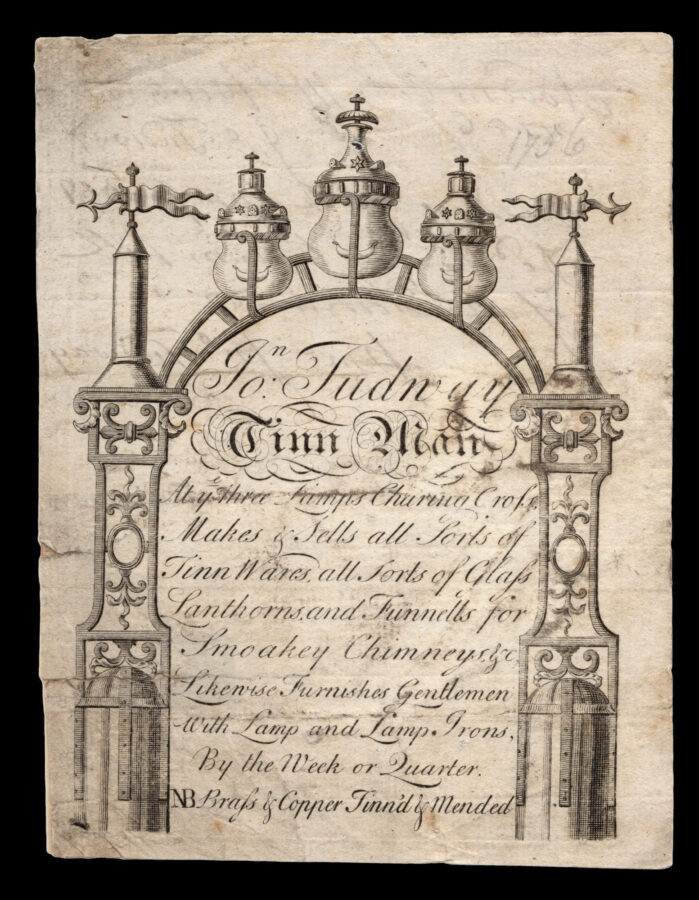 1756
Jo:ⁿ Tudway
Tinn Man
At yᵉ three Lamps Charing Cross,
Makes & Sells all Sorts of
Tinn Wares, all Sorts of Glass
Lanthorns, and Funnells for
Smoakey Chimneys, &c,
Likewise Furnishes Gentlemen
With Lamp and Lamp Irons,
By the Week or Quarter.
NB Brass & Copper Tinn'd & Mended